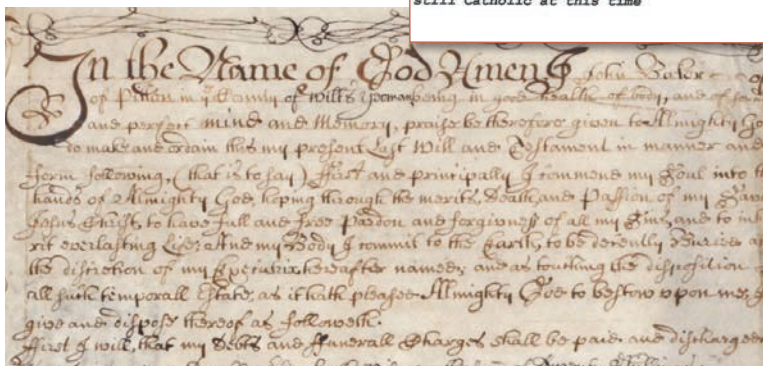 still Catholic at this time
In the Name of God Amen I John Baker
of Pitton in ye County of Wilts Yeoman being in good health of body, and of
and perfect mind and Memory, praise be therefore given to Almighty
to make and ordain this my present Last Will and Testament in manner and
form following. (that is to say) First and principally I commend my Soul into
hands of Almighty God, hoping through the merits, Death, and Passion of my
Jesus Christ, to have full and free Pardon and forgiveness of all my Sins, and to
rit everlasting Life: And my Body I commit to the Earth, to be decently Buried
the discretion of my Executrix hereafter named; and as touching the disposition
all such temporall Estate, as it hath pleased Almighty God to bestow upon me,
give and dispose thereof as followeth.
First I will, that my Debts and Funerall Charges shall be paid and discharged